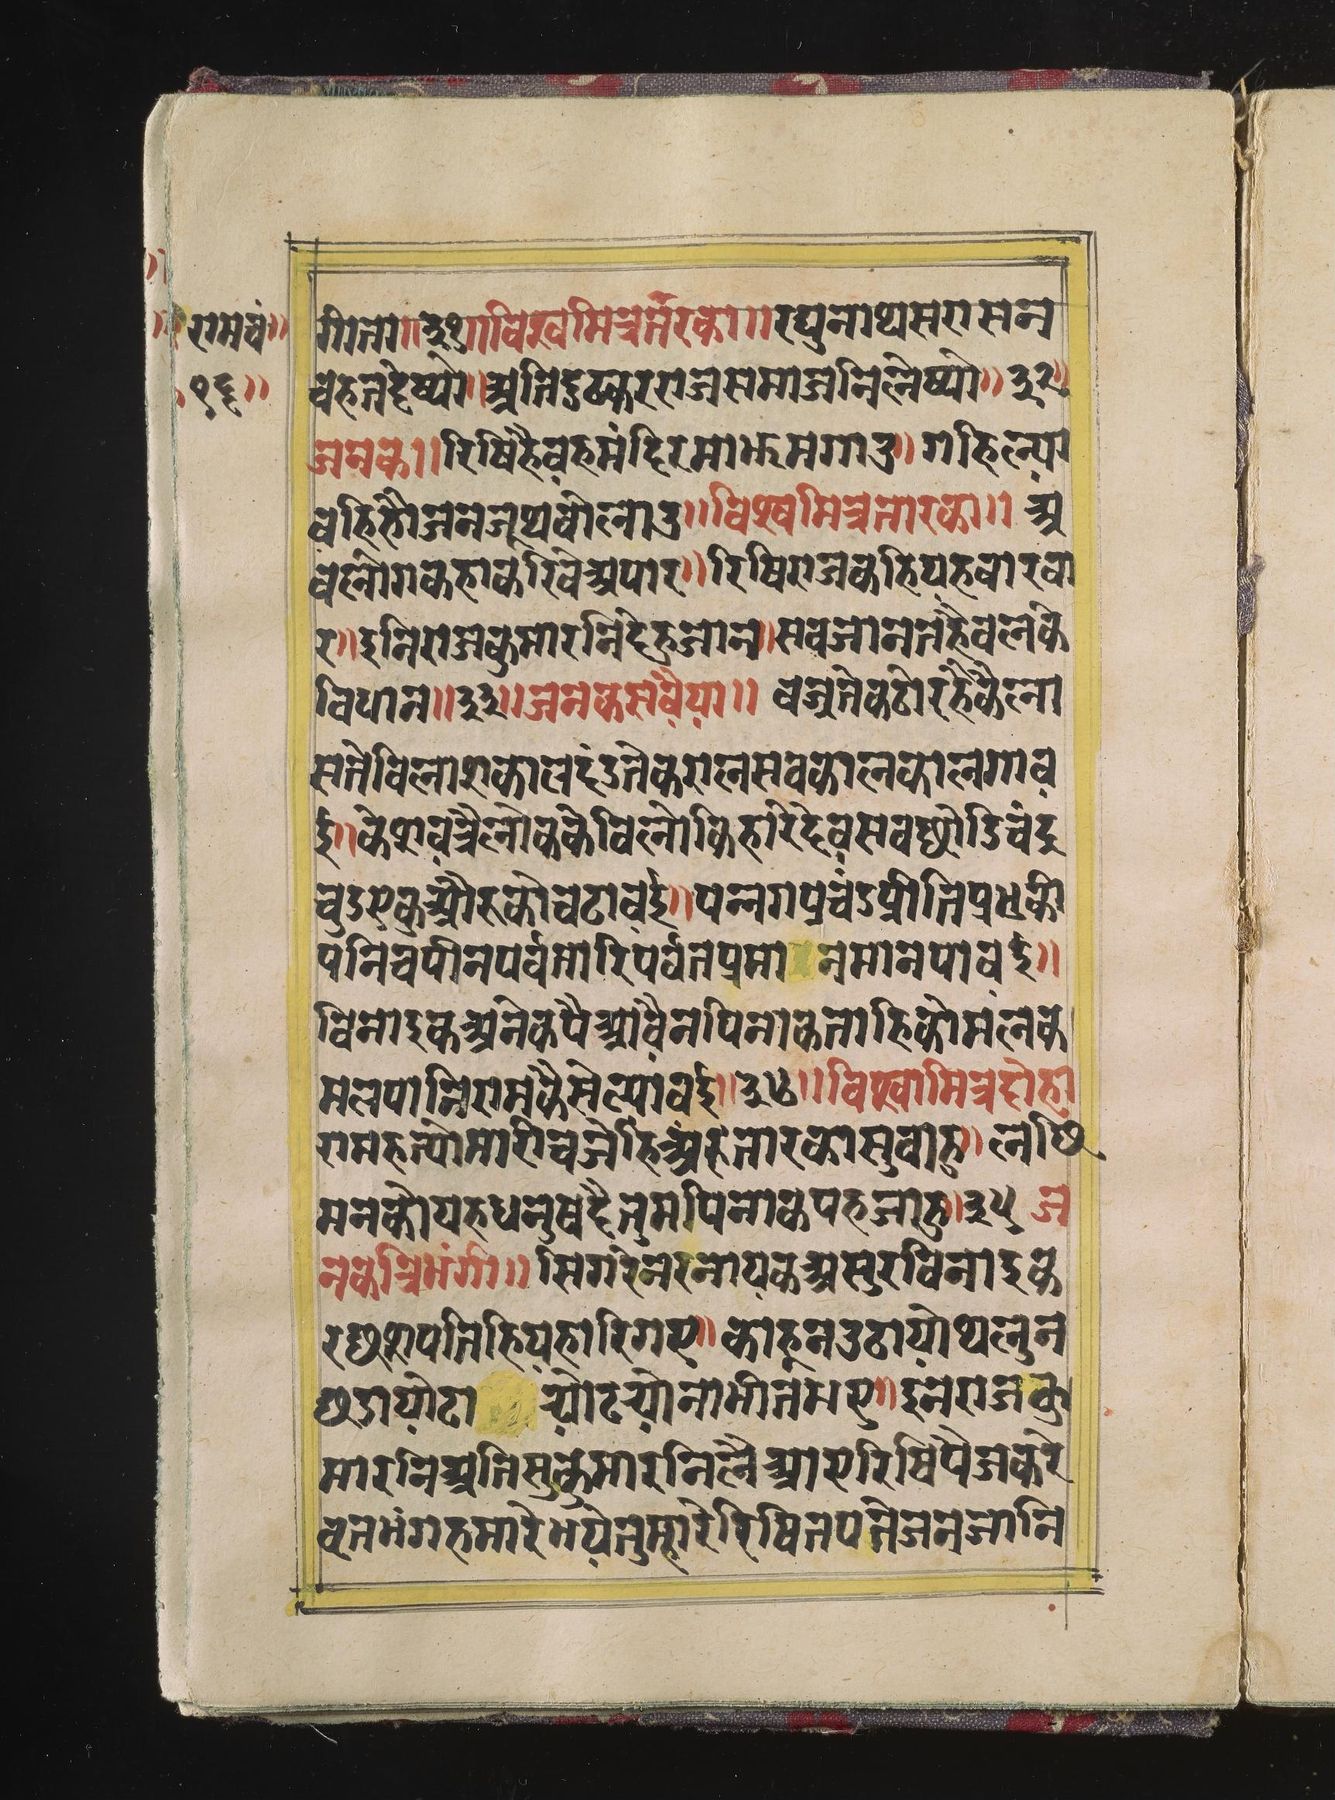 रामचं॥
१६॥
गीता॥३१॥विश्वामित्रतारका॥रघुनाथसरासन
चहतदेष्यौ॥अतिदुष्करराजसमाजनिलेष्यौ॥३२॥
जनक॥रिषिहैवहमंदिरमाझमगाउ॥गहिल्या
वहिहौजनजूथवोलाउ॥विश्वामित्रतारका॥अ
वलोगकहाकरिवेअपार॥रिषिराजकहियहवारवा
र॥इनिराजकुमारनिदेहुजान॥सवजानतहैवलके
विधान॥३३॥जनकसवैया॥ वज्रतेकठोरहैकैला
सतेविलाशकालदंडतेकरालसवकालकालगाव
ई॥केशवत्रैलोककेविलोकिहारिदेवसवछोडिचंद्र
चुडएकऔरुकोचढावई॥पन्नगप्रचंडप्रीतिप्रधकी
पनिचपीनपर्वतारिपर्वतप्रमा नमानपावई॥
विनाइकअनेकपैआवैनपिनाकताहिकोमलक
मलपानिरामकैसेल्यावई॥३४॥विश्वामित्रदोहा
रामहत्योमारीचजेहिंअरुतारकासुवाहु॥लछि
मनकौयहधनुषदैतुमपिनाकपहजाहु॥३५ ज
नकत्रिभंगी॥ सिगरेनरनायकअसुरविनाइक
रछशपतिहियहारिगए॥काहूनउठायोथलुन
छुडायोटा र्‍योटर्‍योनाभीतभए॥इनराजकु
मारनिअतिसुकुमारनिलैआएरिषिपैजकरे
व्रतभंगहमारेभयेतुम्हारेरिषितपतेजनजानि